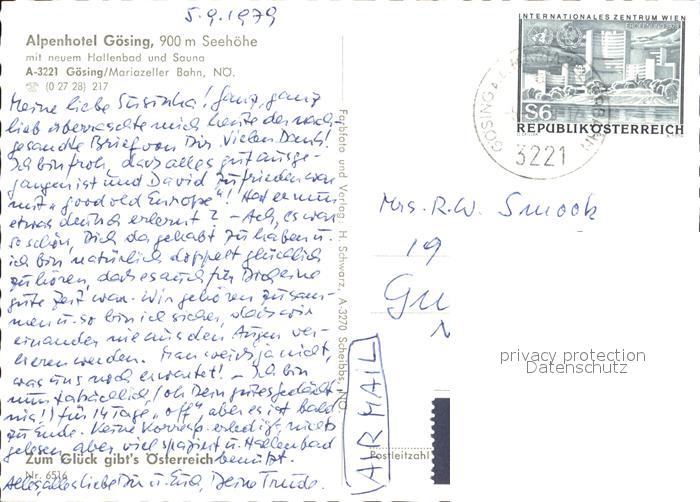 5.9.1979
Alpenhotel Gösing, 900 m Seehöhe
mit neuem Hallenbad und Sauna
A-3221 Gösing/Mariazeller Bahn, NÖ.
☏ (0 27 28) 217
Meine liebe Susinka! Ganz, ganz
lieb überraschte mich heute der nach-
gesandte Brief von Dir. Vielen Dank!
Ich bin froh, dass alles gut ausge-
gangen ist und David zufrieden war
mit "good old Europe"! Hat er nun
etwas deutsch erlernt? - Ach, es war
so schön, Dich da gehabt zu haben u.
ich bin natürlich doppelt glücklich
zu hören, dass es auch für Dich eine
gute Zeit war. Wir gehören zusam-
men u. so bin ich sicher, dass wir
einander nie aus den Augen ver-
lieren werden. Man weiss ja nicht,
was uns noch erwartet! - Ich bin
nun tatsächlich, (oh Dein gutes Gedächt-
nis!) für 14 Tage "off" aber es ist bald
zu Ende. Keine Korresp. erledigt, nichts
gelesen aber viel spaziert u. Hallenbad
benützt.
Zum Glück gibt's Österreich
Nr. 6516
Alles alles Liebe Dir u. Euch, Deine Trude.
Farbfoto und Verlag: H. Schwarz, A-3270 Scheibbs, NÖ.
AIR MAIL
INTERNATIONALES ZENTRUM WIEN
S6
REPUBLIK ÖSTERREICH
GÖSING
3221
Mrs. R.W. Smock
19
Gu
privacy protection
Datenschutz
Postleitzahl